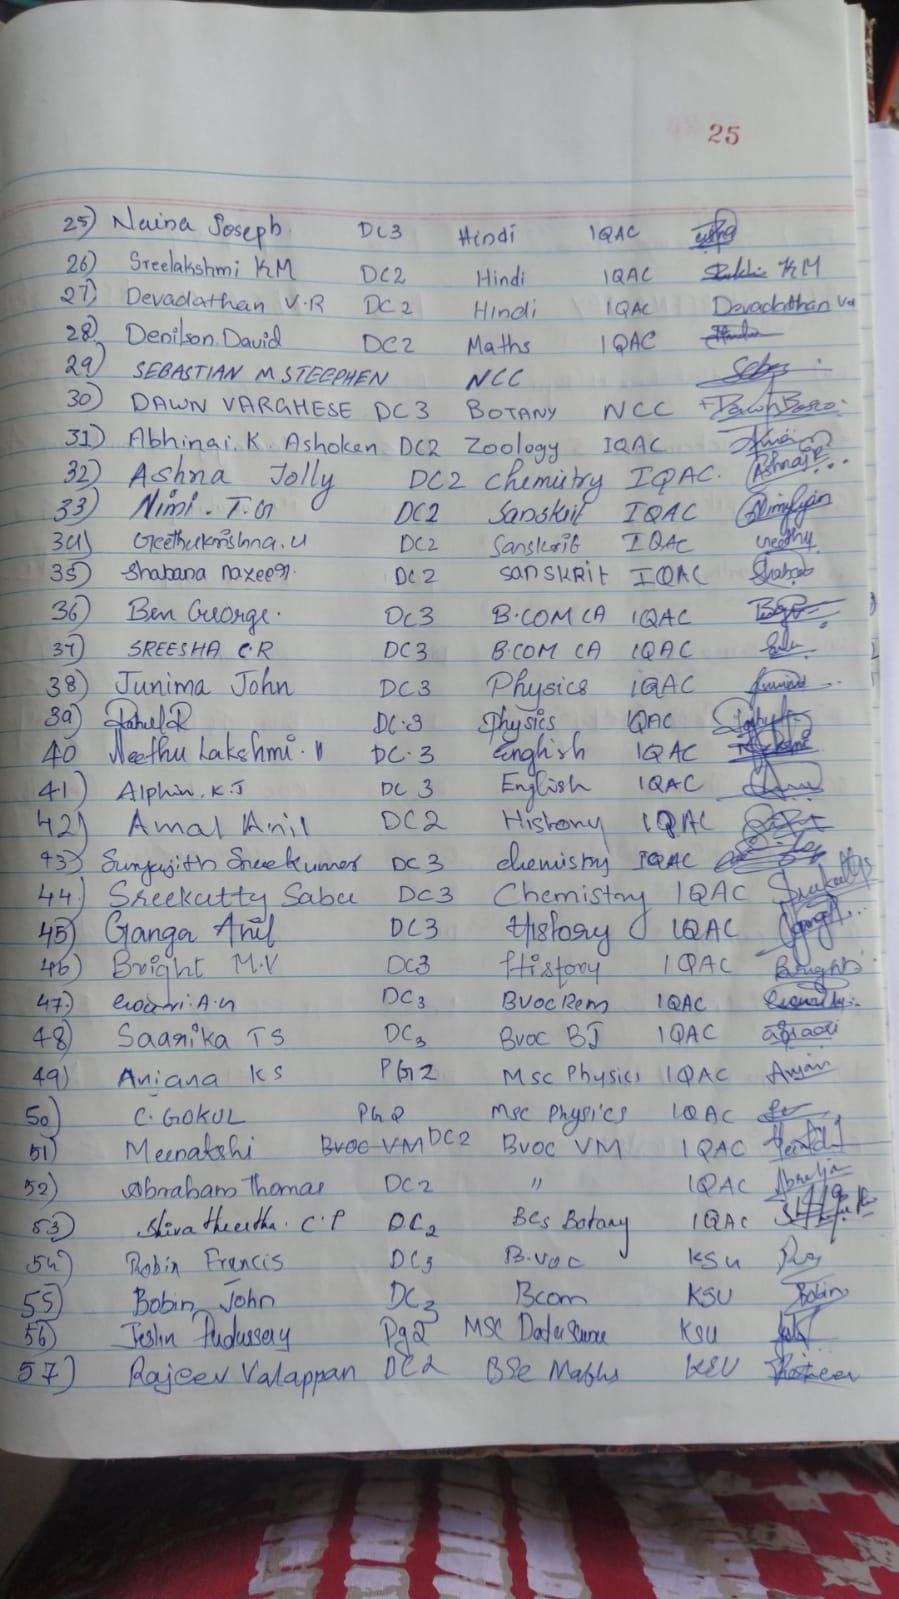 25
25) Naina Joseph. DC3 Hindi IQAC
26) Sreelakshmi KM DC2 Hindi IQAC KM
27) Devadathan V.R DC2 Hindi IQAC Devadathan VR
28) Denilson David DC2 Maths IQAC
29) SEBASTIAN M STEEPHEN NCC
30) DAWN VARGHESE DC3 BOTANY NCC
31) Abhinai. K. Ashoken DC2 Zoology IQAC
32) Ashna Jolly DC2 chemistry IQAC.
33) Nimi. T.G DC2 Sanskrit IQAC
34) Geethukrishna. U DC2 Sanskrit IQAC Geethu
35) Shabana nazeer. DC2 SANSKRIT IQAC
36) Ben George. DC3 B.COM CA IQAC
37) SREESHA C.R DC3 B.COM CA IQAC
38) Junima John DC3 Physics IQAC
39) Rahul R DC.3 Physics IQAC
40 Neethu Lakshmi. DC.3 English IQAC
41) Alphin. K.J DC 3 English IQAC
42) Amal Anil DC2 History IQAC
43) Sreekumar DC3 chemistry IQAC
44) Sreekutty Sabu DC3 Chemistry IQAC Sreekutty
45) Ganga Anil DC3 History IQAC
46) Bright M.V DC3 History IQAC Bright
47) DC3 Bvoc Rem IQAC
48) Saarika TS DC3 Bvoc BJ IQAC
49) Anjana KS PG2 Msc Physics IQAC Anjana
50) C. GOKUL PG2 Msc physics IQAC
51) Meenakshi Bvoc VM DC2 Bvoc VM IQAC
52) Abraham Thomas DC2 " IQAC
53) Shivatheertha. C.P DC2 BCs Botany IQAC
54) Robin Francis DC3 B.voc KSU
55) Bobin John DC3 Bcom KSU Bobin
56) Jeslin Pudussery Pg2 MSC Data Science KSU
57) Rajeev Valappan DC2 BSc Maths KSU